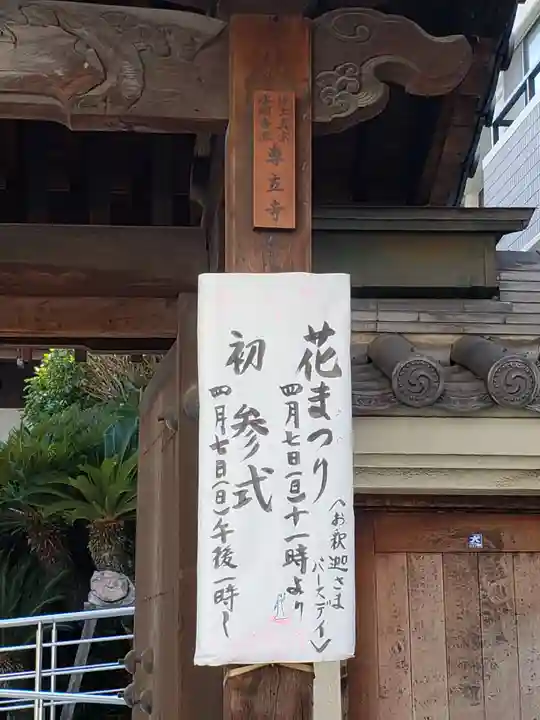 浄土真宗
本願寺派
専立寺
花まつり
〈お釈迦さま
バースデイ〉
四月七日(日)十一時より
初参式
四月七日(日)午後一時〜
犬